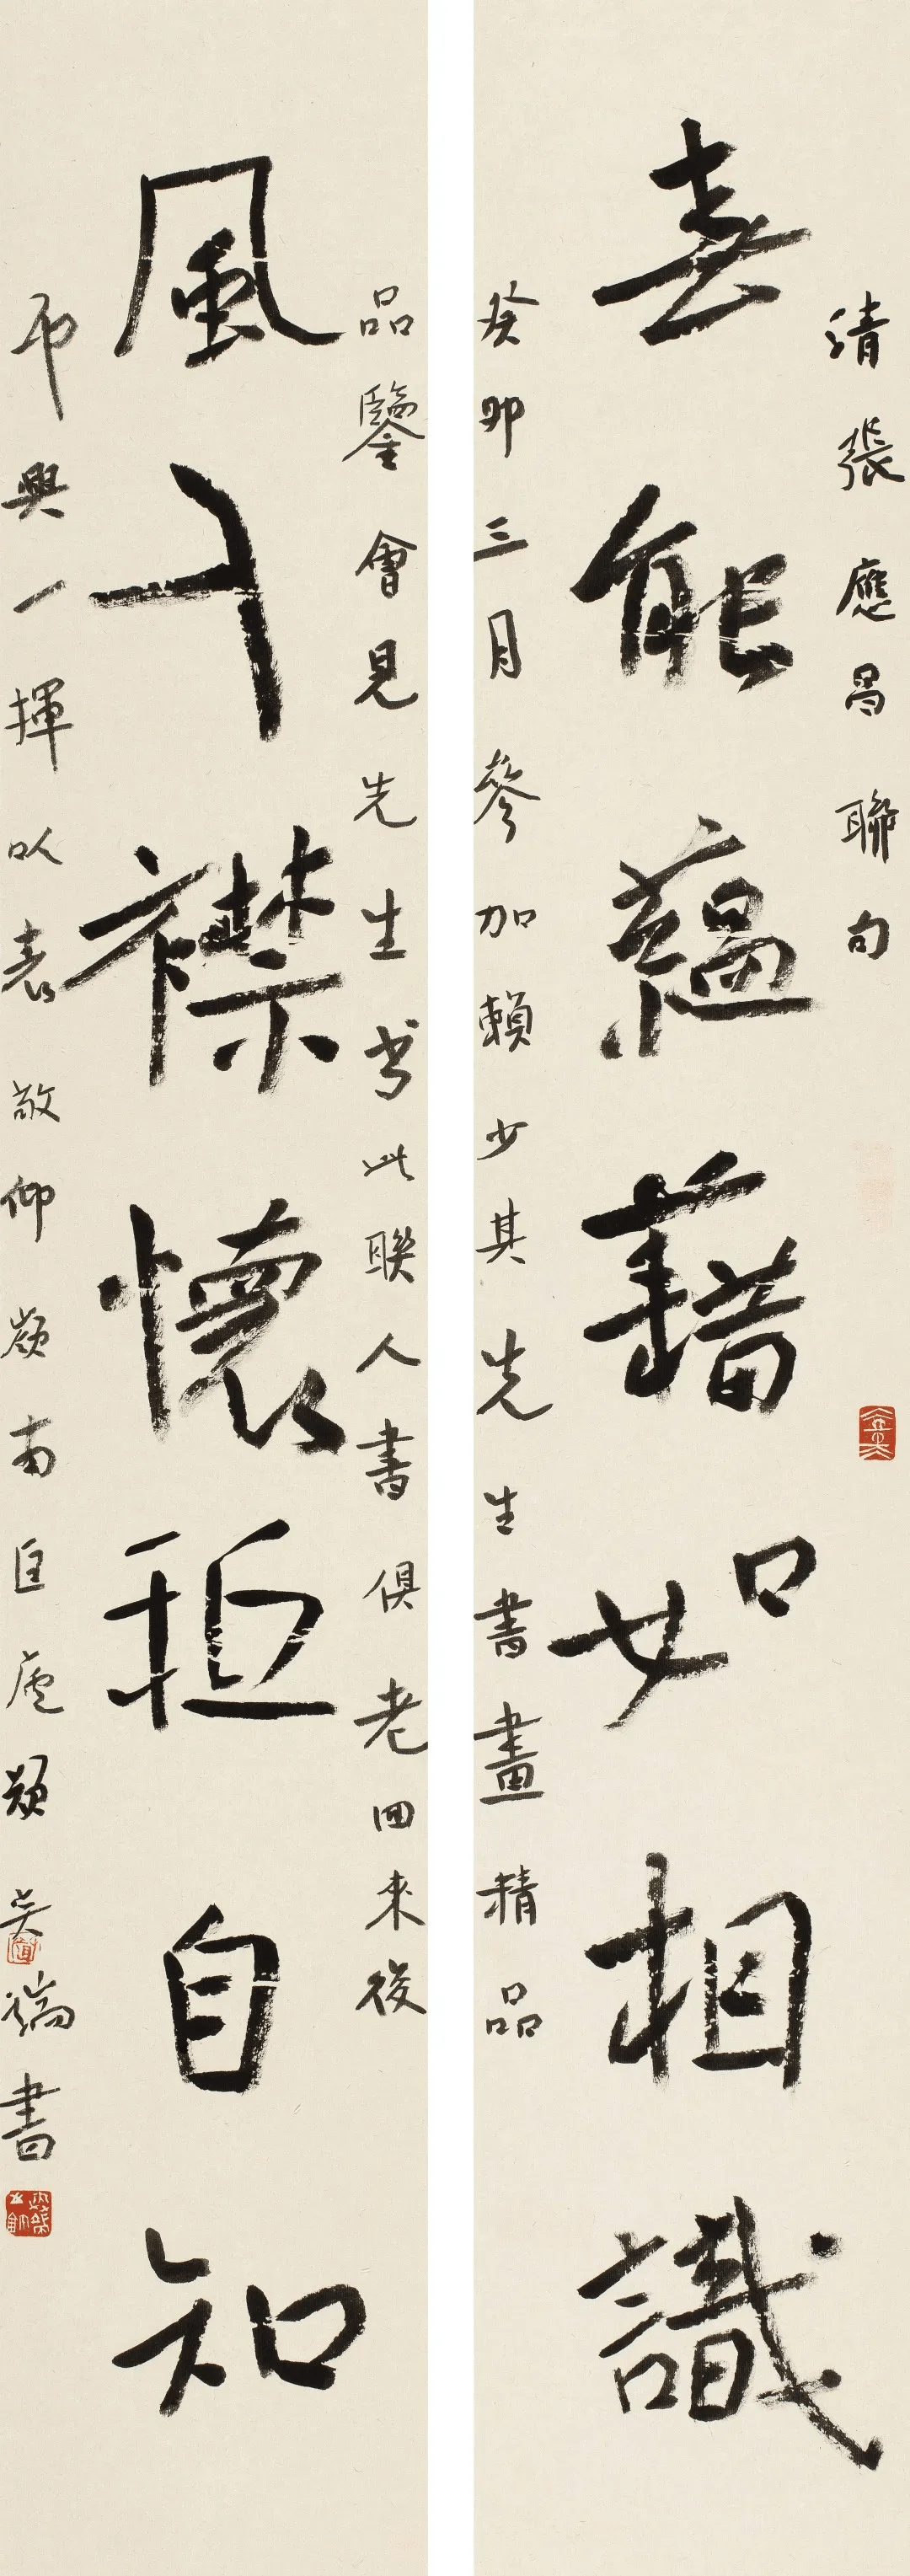 清張應昌聯句
能蘊藉如相識
癸卯三月參加賴少其先生書畫精品
品鑒會見先生书此聯人書俱老回來後
風襟懷自知
即興一揮以表敬仰嶺南匡廬吳書